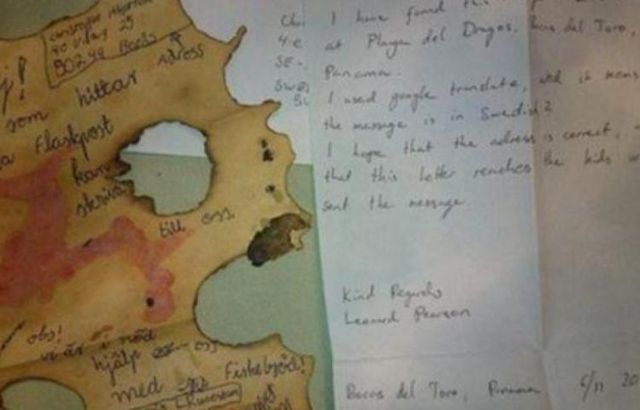 40 Vräv 25
50244 Borås
Adress
j!
som hittar
a flaskpost
kan
skriva
till oss.
obs!
vi är i nöd
hjälp oss
med Fiskebjöd!
I have found this
at Playa del Drago, Bocas del Toro,
Panama.
I used google translate, and it seems
the message is in Swedish?
I hope that the adress is correct,
that this letter reaches the kids
sent the message.
Kind Regards
Leonard Pearson
Bocas del Toro, Panama 6/11 20